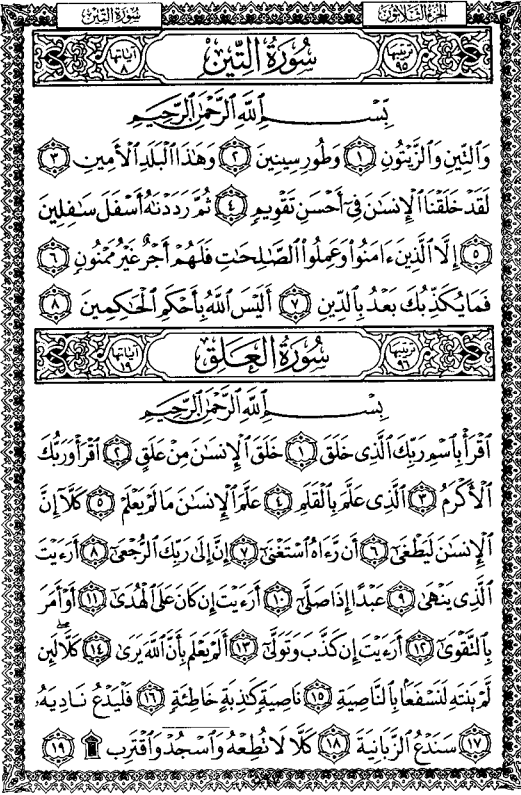 سُورَةُ التِّينِ الجزءُ الثَّلَاثُونَ
ترتيبها ٩٥ سُورَةُ التِّينِ آياتها ٨
بِسْمِ ٱللَّهِ ٱلرَّحْمَٰنِ ٱلرَّحِيمِ
وَٱلتِّينِ وَٱلزَّيْتُونِ ١ وَطُورِ سِينِينَ ٢ وَهَٰذَا ٱلْبَلَدِ ٱلْأَمِينِ ٣
لَقَدْ خَلَقْنَا ٱلْإِنسَٰنَ فِىٓ أَحْسَنِ تَقْوِيمٍ ٤ ثُمَّ رَدَدْنَٰهُ أَسْفَلَ سَٰفِلِينَ
٥ إِلَّا ٱلَّذِينَ ءَامَنُوا۟ وَعَمِلُوا۟ ٱلصَّٰلِحَٰتِ فَلَهُمْ أَجْرٌ غَيْرُ مَمْنُونٍ ٦
فَمَا يُكَذِّبُكَ بَعْدُ بِٱلدِّينِ ٧ أَلَيْسَ ٱللَّهُ بِأَحْكَمِ ٱلْحَٰكِمِينَ ٨
ترتيبها ٩٦ سُورَةُ العَلَقِ آياتها ١٩
بِسْمِ ٱللَّهِ ٱلرَّحْمَٰنِ ٱلرَّحِيمِ
ٱقْرَأْ بِٱسْمِ رَبِّكَ ٱلَّذِى خَلَقَ ١ خَلَقَ ٱلْإِنسَٰنَ مِنْ عَلَقٍ ٢ ٱقْرَأْ وَرَبُّكَ
ٱلْأَكْرَمُ ٣ ٱلَّذِى عَلَّمَ بِٱلْقَلَمِ ٤ عَلَّمَ ٱلْإِنسَٰنَ مَا لَمْ يَعْلَمْ ٥ كَلَّآ إِنَّ
ٱلْإِنسَٰنَ لَيَطْغَىٰٓ ٦ أَن رَّءَاهُ ٱسْتَغْنَىٰٓ ٧ إِنَّ إِلَىٰ رَبِّكَ ٱلرُّجْعَىٰٓ ٨ أَرَءَيْتَ
ٱلَّذِى يَنْهَىٰ ٩ عَبْدًا إِذَا صَلَّىٰٓ ١٠ أَرَءَيْتَ إِن كَانَ عَلَى ٱلْهُدَىٰٓ ١١ أَوْ أَمَرَ
بِٱلتَّقْوَىٰٓ ١٢ أَرَءَيْتَ إِن كَذَّبَ وَتَوَلَّىٰٓ ١٣ أَلَمْ يَعْلَم بِأَنَّ ٱللَّهَ يَرَىٰ ١٤ كَلَّا لَئِن
لَّمْ يَنتَهِ لَنَسْفَعًۢا بِٱلنَّاصِيَةِ ١٥ نَاصِيَةٍ كَٰذِبَةٍ خَاطِئَةٍ ١٦ فَلْيَدْعُ نَادِيَهُۥ
١٧ سَنَدْعُ ٱلزَّبَانِيَةَ ١٨ كَلَّا لَا تُطِعْهُ وَٱسْجُدْ وَٱقْتَرِب ۩ ١٩